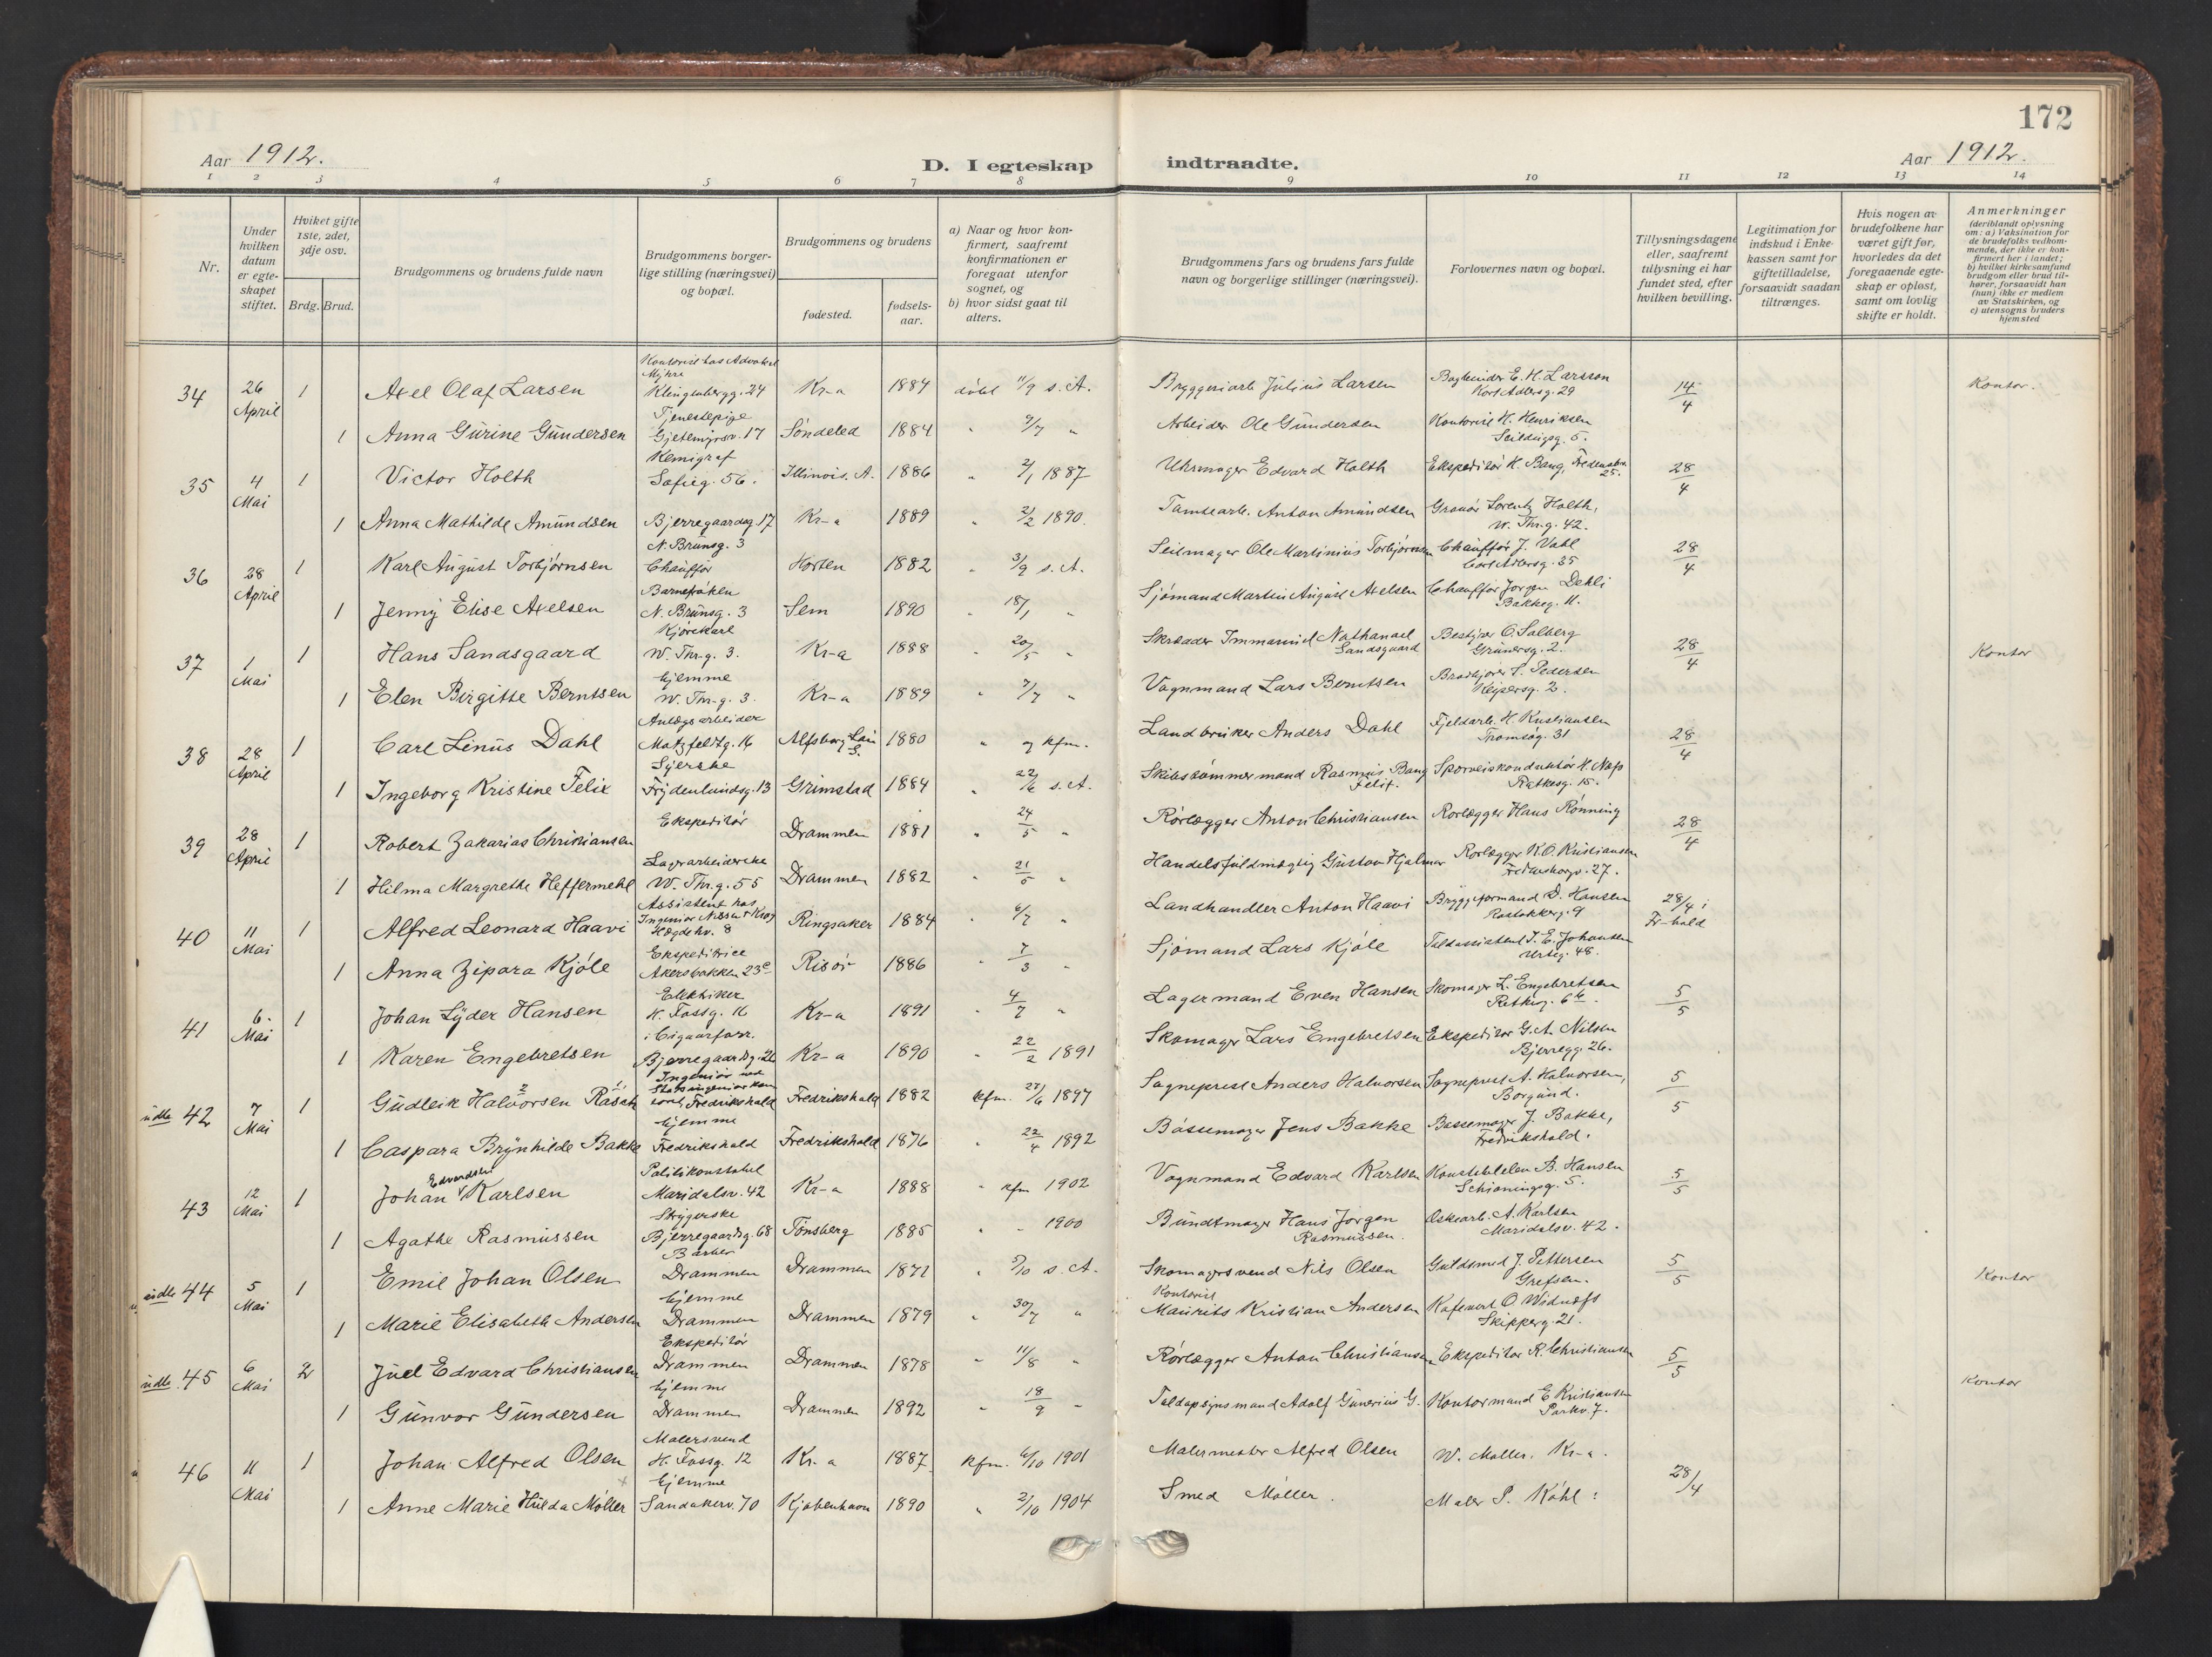 172
Aar 1912.
D. I egteskap indtraadte.
Aar 1912.
1 2 3 4 5 6 7 8 9 10 11 12 13 14
Nr.
Under hvilken datum er egte-skapet stiftet.
Hvilket gifte 1ste, 2det, 3dje osv.
Brdg. Brud.
Brudgommens og brudens fulde navn
Brudgommens borger-lige stilling (næringsvei) og bopæl.
Brudgommens og brudens
fødested.
fødsels-aar.
a) Naar og hvor kon-firmert, saafremt konfirmationen er foregaat utenfor sognet, og
b) hvor sidst gaat til alters.
Brudgommens fars og brudens fars fulde navn og borgerlige stillinger (næringsvei).
Forlovernes navn og bopæl.
Tillysningsdagene eller, saafremt tillysning ei har fundet sted, efter hvilken bevilling.
Legitimation for indskud i Enke-kassen samt for giftetilladelse, forsaavidt saadan tiltrænges.
Hvis nogen av brudefolkene har været gift før, hvorledes da det foregaaende egte-skap er opløst, samt om lovlig skifte er holdt.
Anmerkninger (deriblandt oplysning om: a) Vaksination for de brudefolks vedkom-mende, der ikke er kon-firmert her i landet; b) hvilket kirkesamfund brudgom eller brud til-hører, forsaavidt han (hun) ikke er medlem av Statskirken, og c) utensogns bruders hjemsted
34 26 April 1 Axel Olaf Larsen Kontorist hos Advokat Myhre Klingenbergg. 24 Kr-a 1884 døbt 11/9 s. A. Bryggeriarb. Julius Larsen Bagbinder E. H. Larsson Kort Adlersg. 29 14/4 Kontor.
1 Anna Gurine Gundersen Tjenestepige Gjetemyrsv. 17 Søndeled 1884 " 9/7 " Arbeider Ole Gundersen Kontorist H. Henriksen Seildugsg. 5.
35 4 Mai 1 Victor Holth Kemigraf Sofieg. 56. Illinois. A. 1886 " 2/1 1887 Uhrmager Edvard Holth Ekspeditør H. Bang, 25. 28/4
1 Anna Mathilde Amundsen Bjerregaardsg. 17 Kr-a 1889 " 2/2 1890. Tomtearb. Anton Amundsen Gravør Lorentz Holth, W. Thr.g. 42.
36 28 April 1 Karl August Torbjørnsen N. Brunsg. 3 Chauffør Horten 1882 " 3/9 s. A. Seilmager Ole Martinius Torbjørnsen Chauffør J. Vahl Cort Adlersg. 35 28/4
1 Jenny Elise Axelsen Barnefrøken N. Brunsg. 3 Sem 1890 " 18/1 " Sjømand Martin August Axelsen Chauffør Jørgen Dehli Bakkeg. 11.
37 1 Mai 1 Hans Sandsgaard Kjørekarl W. Thr-g. 3. Kr-a 1888 " 20/5 " Skrædder Immanuel Nathanael Sandsgaard Bestyrer O. Salberg Grünersg. 2. 28/4 Kontor
1 Elen Birgitte Berntsen hjemme W. Thr-g. 3. Kr-a 1889 " 7/7 " Vognmand Lars Berntsen Brødkjører P. Pedersen Keysersg. 2.
38 28 April 1 Carl Linus Dahl Anlægsarbeider Motzfeldtg. 16 Alfsborg Län S. 1880 " og kfm. Landbruker Anders Dahl Fjeldarb. H. Kristiansen Tromsøg. 31 28/4
1 Ingeborg Kristine Felix Syerske Frydenlundsg. 13 Grimstad 1884 " 22/6 s. A. Skibstømmermand Rasmus Bang Felix. Sporveiskonduktør H. Næss Rathkesg. 15.
39 28 April 1 Robert Zakarias Christiansen Ekspeditør Drammen 1881 " 24/5 " Rørlægger Anton Christiansen Rørlægger Hans Rønning 28/4
1 Hilma Margrethe Heffermehl Lagerarbeiderske W. Thr.g. 55 Drammen 1882 " 21/5 " Handelsfuldmægtig Gustav Hjalmar Rørlægger K. O. Kristiansen 27.
40 11 Mai 1 Alfred Leonard Haavi Assistent hos Ingeniør Nissen & Krog Hegdehv. 8 Ringsaker 1884 " 6/7 " Landhandler Anton Haavi Bryggeformand D. Hansen Rostokkerg. 9 28/4 i Fr-hald
1 Anna Zipora Kjøle Ekspeditrice Akersbakken 23c Risør 1886 " 7/3 " Sjømand Lars Kjøle Toldassistent T. E. Johansen 48.
41 6. Mai 1 Johan Lyder Hansen Elektriker H. Fossg. 16 Kr-a 1891 " 4/7 " Lagermand Even Hansen Skomager L. Engebretsen Rathkeg. 6 5/5
1 Karen Engebretsen i Cigaarforr. Bjerregaardsg. 26 Kr-a 1890 " 22/2 1891 Skomager Lars Engebretsen Ekspeditør G. A. Nilsen Bjerregg. 26.
udb. 42 7 Mai 1 Gudleik Halvorsen Råsåk Ingeniør ved Statsingeniørkontoret, Fredrikshald Fredrikshald 1882 kfm. 27/6 1897 Sogneprest Anders Halvorsen Sogneprest A. Halvorsen, Borgund. 5/5
1 Caspara Brynhilde Bakke hjemme Fredrikshald Fredrikshald 1876 " 22/4 1892 Bøssemager Jens Bakke Bøssemager J. Bakke, Fredrikshald.
43 12 Mai 1 Johan Edvardsen Karlsen Politikonstabel Maridalsv. 42 Kr-a 1888 " kfm 1902 Vognmand Edvard Karlsen Konstabelen B. Hansen Schiøningsg. 5. 5/5
1 Agathe Rasmussen Strygerske Bjerregaardsg. 68 Tønsberg 1885 " - 1900 Bundtmager Hans Jørgen Rasmussen. Æskearb. A. Karlsen Maridalsv. 42.
udb. 44 5 Mai 1 Emil Johan Olsen Barber Drammen Drammen 1871 " 5/10 s. A. Skomagersvend Nils Olsen Guldsmed J. Pettersen Grefsen. 5/5 Kontor
1 Marie Elisabeth Andersen hjemme Drammen Drammen 1879 " 30/7 " Kontorist Maurits Kristian Andersen Kafevert O. Skipperg. 21.
udb. 45 6 Mai 2 Juel Edvard Christiansen Ekspeditør Drammen Drammen 1878 " 11/8 " Rørlægger Anton Christiansen Ekspeditør R. Christiansen 5/5 Kontor
1 Gunvor Gundersen hjemme Drammen Drammen 1892 " 18/9 - Toldopsynsmand Adolf Gunerius G. Kontormand E. Kristiansen Parkv. 7.
46 11 Mai 1 Johan Alfred Olsen Malersvend H. Fossg. 12 Kr. a 1887 kfm. 6/10 1901 Malermester Alfred Olsen W. Møller. Kr-a. 28/4
1 Anne Marie Hulda Møller hjemme Sandakerv. 70 Kjøbenhavn 1890 " 2/10 1904 Smed Møller. Maler P. Köhl: